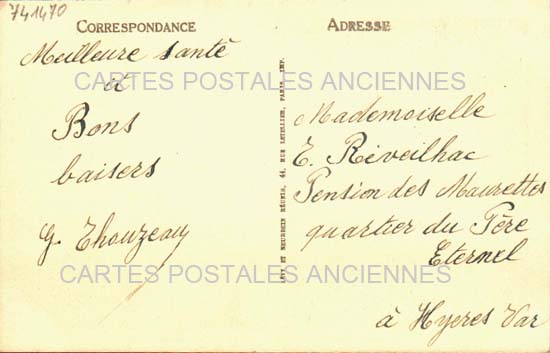 741470
CORRESPONDANCE
Meilleure santé
et
Bons
baisers
G. Thouzeau
CARTES POSTALES ANCIENNES
CARTES POSTALES ANCIENNES
LÉVY ET NEURDEIN RÉUNIS, 44, RUE LETELLIER, PARIS, IMP.
ADRESSE
Mademoiselle
E. Réveilhac
Pension des Maurettes
quartier du Père
Eternel
à Hyeres Var